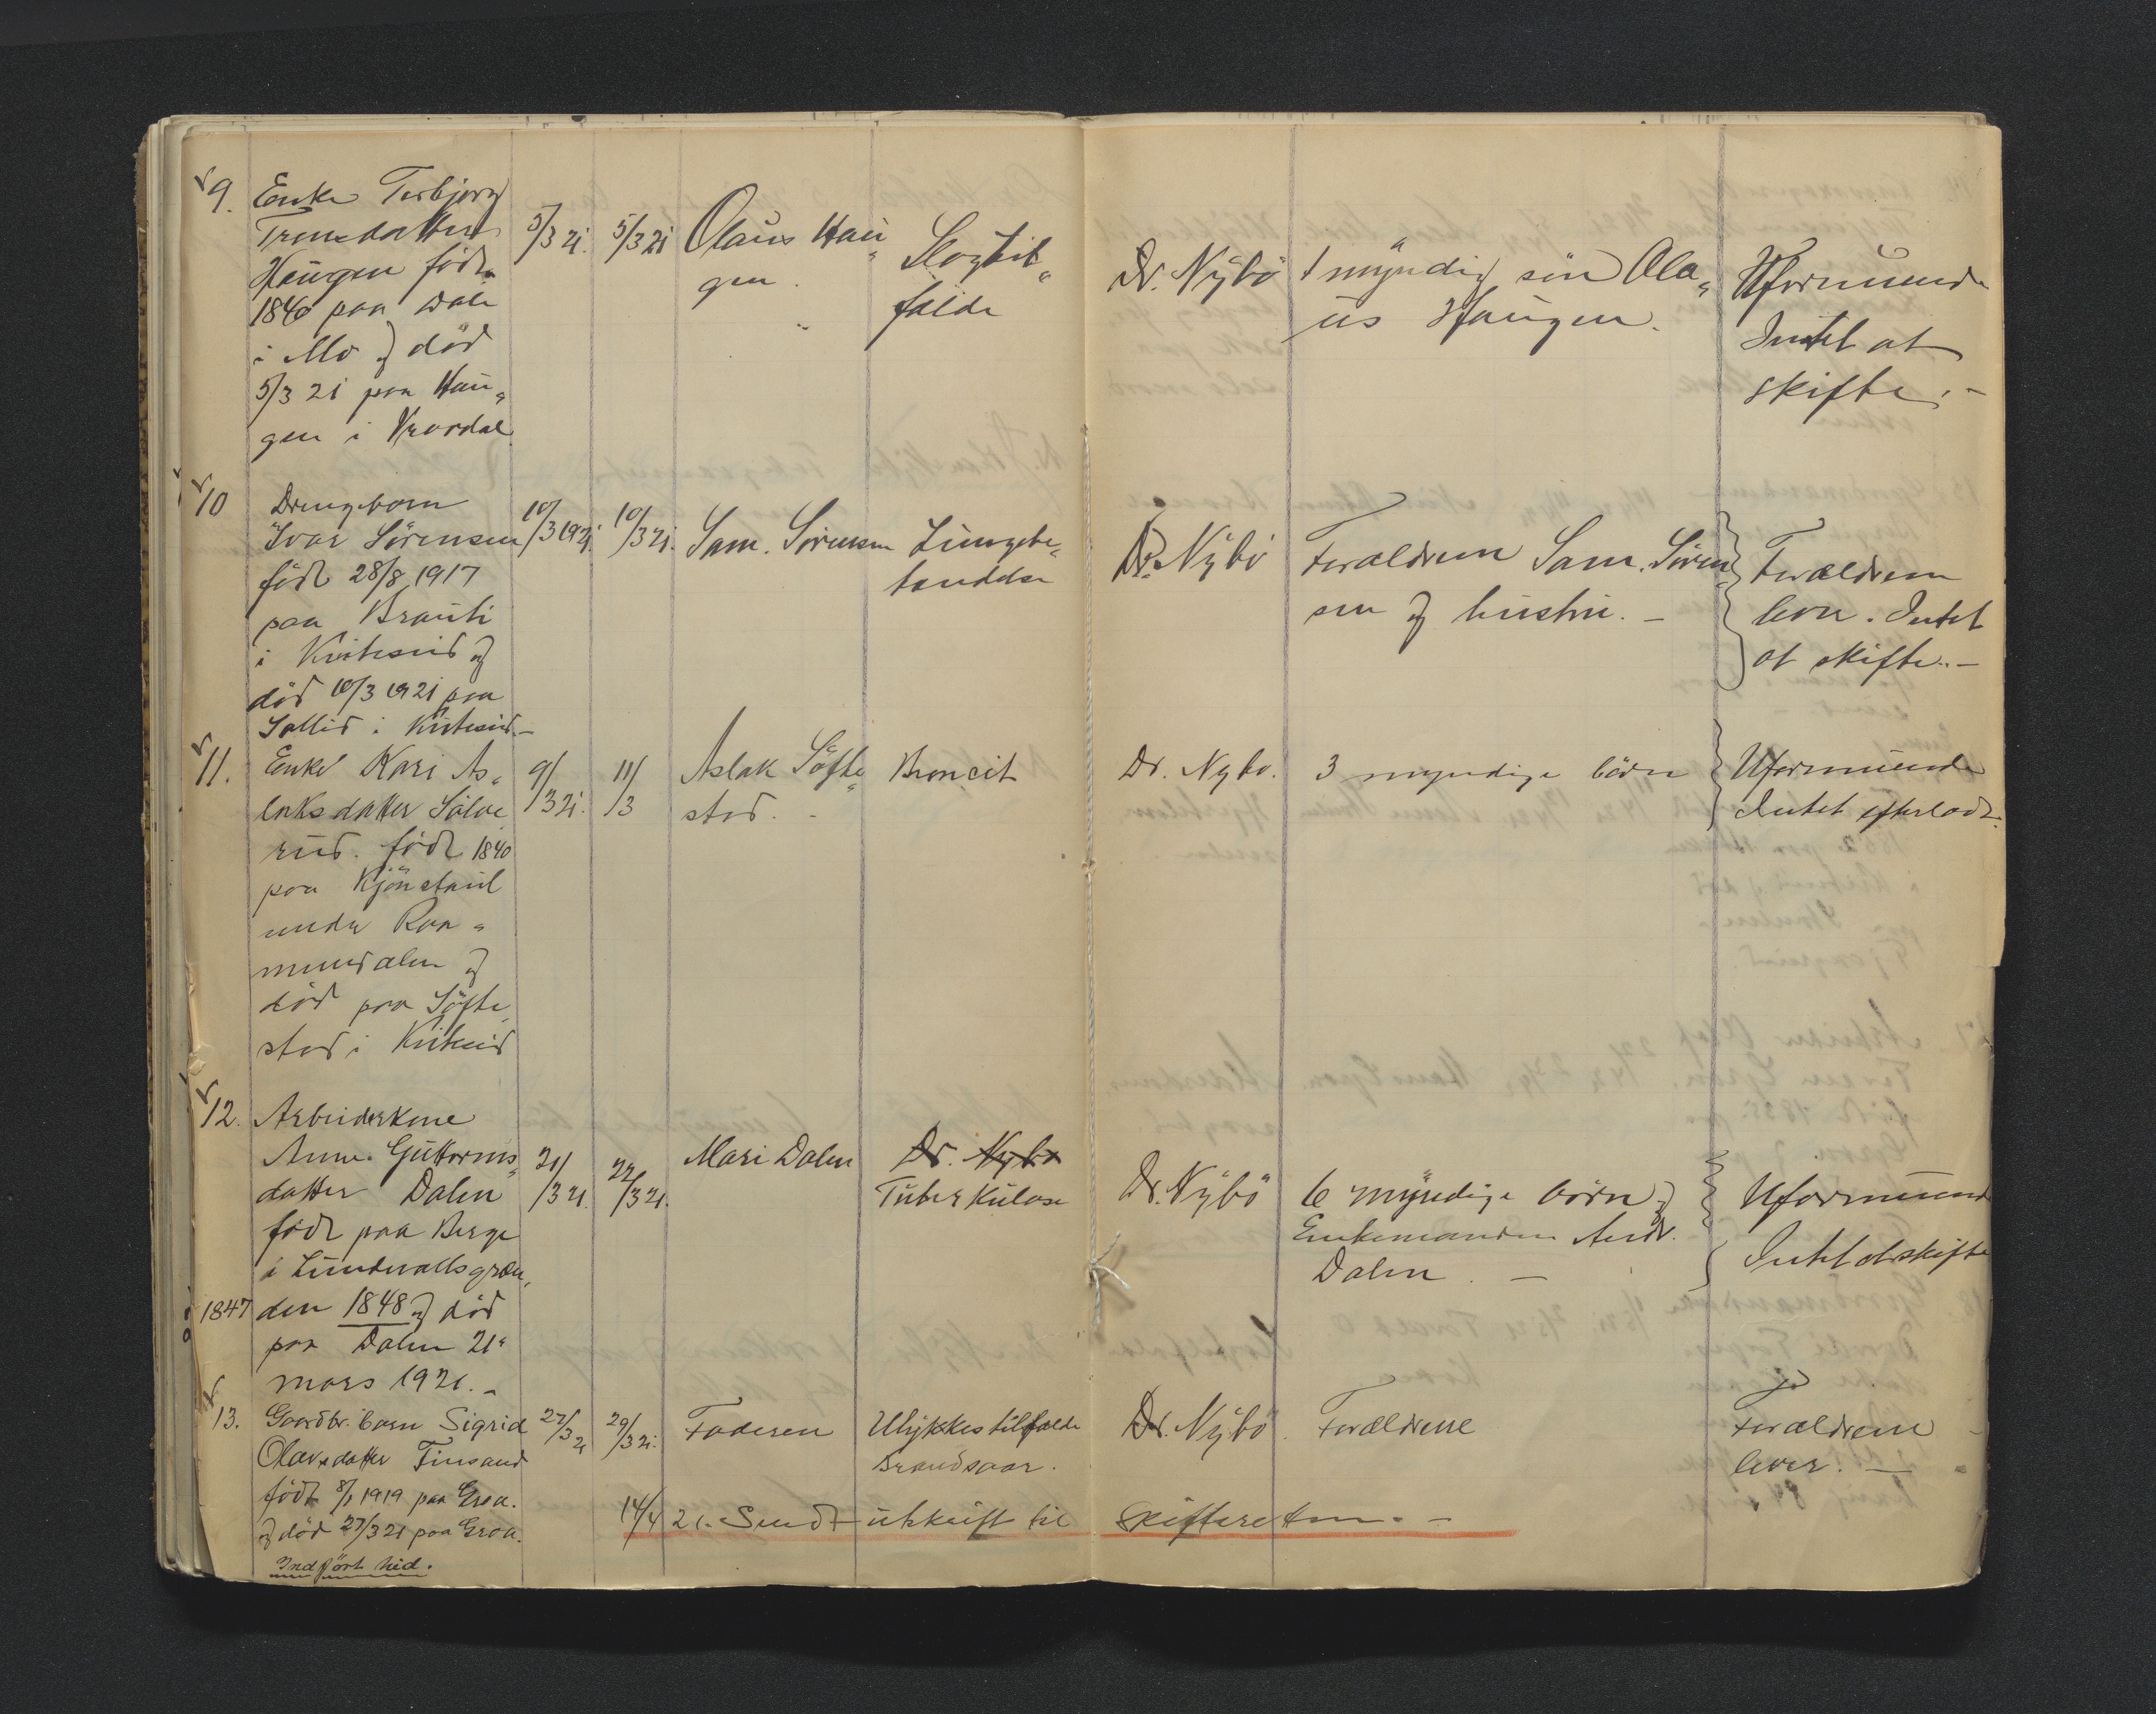 9.
Enke Torbjörg
Tronsdatter
Haugen född
1840 paa Dale
i Mo og död
5/3 21 paa Hau„
gen i Vraadal
5/3 21.
5/3 21
Olaus Hau„
gen.
Slagtil„
fælde
Dr. Nybö
1 myndig sön Ola„
us Haugen.
Uformuende
Intet at
skifte.-
10
Drengebarn
Ivar Sörensen
född 28/8 1917
paa Brauti
i Kviteseid og
död 10/3 1921 paa
i Kviteseid.-
10/3 1921.
10/3 21.
Sam. Sörensen
Lungebe„
tændelse
Dr. Nybö
Forældrene Sam. Sören„
sen og hustru. -
Forældrene
lever. Intet
at skifte.-
11.
Enke Kari As„
laksdatter Sölve
rud. född 1840
paa Kjönstaul
under Raa„
mundalen og
död paa Söfte„
stad i Kviteseid
9/3 21.
11/3
Aslak Söfte„
stad. -
Broncit
Dr. Nybö.
3 myndige börn
Uformuende
Intet efterladt.
12.
Arbeiderkone
Anne Guttorms„
datter Dalen
född paa Berge
i Lundevallsgræn„
1847 den 1848 og död
paa Dalen 21„
mars 1921. -
21/3 21.
22/3 21.
Mari Dalen
Dr. Nybö
Tuberkulose
Dr. Nybö
6 myndige börn og
Enkemanden Andr.
Dalen. -
Uformuende
Intet at skifte
13.
Gaardbr. barn Sigrid
Olavsdatter Tinsand
född 8/1 1919 paa Groa.
og död 27/3 21 paa Groa.
Indfört hid.
27/3 21
29/3 21.
Faderen
Ulykkestilfælde
Brandsaar.
Dr. Nybö
Forældrene
Forældrene
lever. -
14/4 21. Sendt utskrift til Skifteretten. -